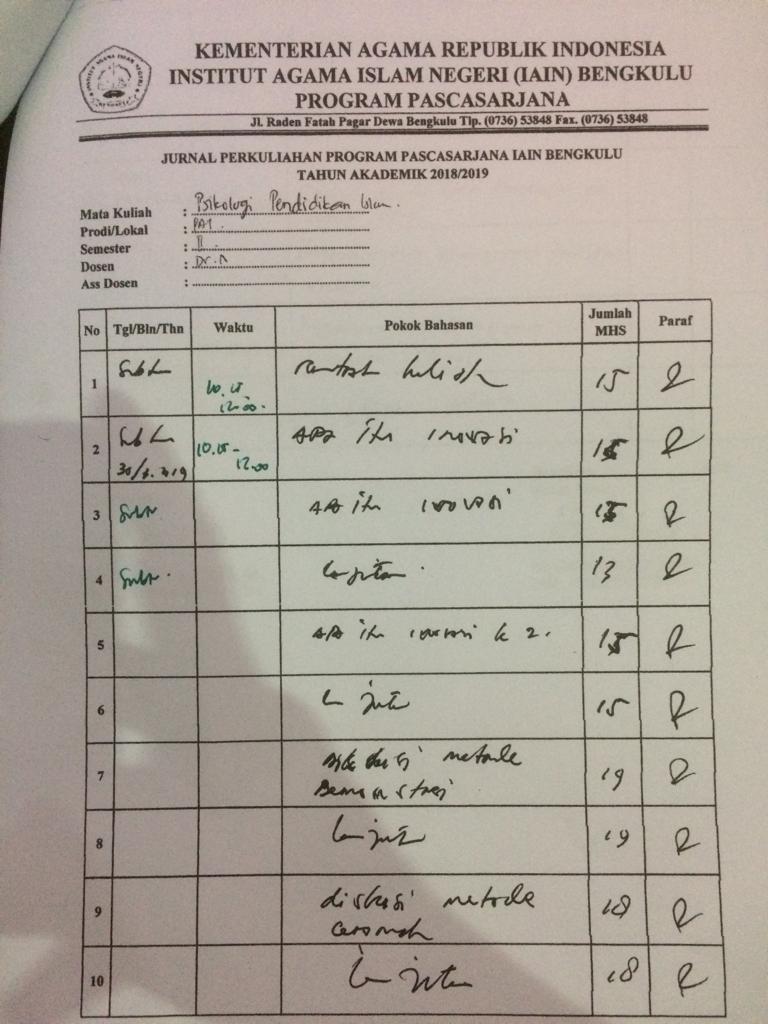 KEMENTERIAN AGAMA REPUBLIK INDONESIA
INSTITUT AGAMA ISLAM NEGERI (IAIN) BENGKULU
PROGRAM PASCASARJANA
Jl. Raden Fatah Pagar Dewa Bengkulu Tlp. (0736) 53848 Fax. (0736) 53848
JURNAL PERKULIAHAN PROGRAM PASCASARJANA IAIN BENGKULU
TAHUN AKADEMIK 2018/2019
Mata Kuliah : Psikologi Pendidikan Islam.
Prodi/Lokal : PAI.
Semester : II.
Dosen : Dr.
Ass Dosen :
No Tgl/Bln/Thn Waktu Pokok Bahasan Jumlah MHS Paraf
1 10.15 12.00. kuliah 15
2 30/3.2019 10.15 - 12.00 apa itu inovasi 15
3 apa itu inovasi 15
4 lanjutan. 13
5 apa itu inovasi ke 2. 15
6 lanjutan 15
7 diskusi metode
Demonstrasi 19
8 lanjutan 19
9 diskusi metode
ceramah 18
10 lanjutan 18